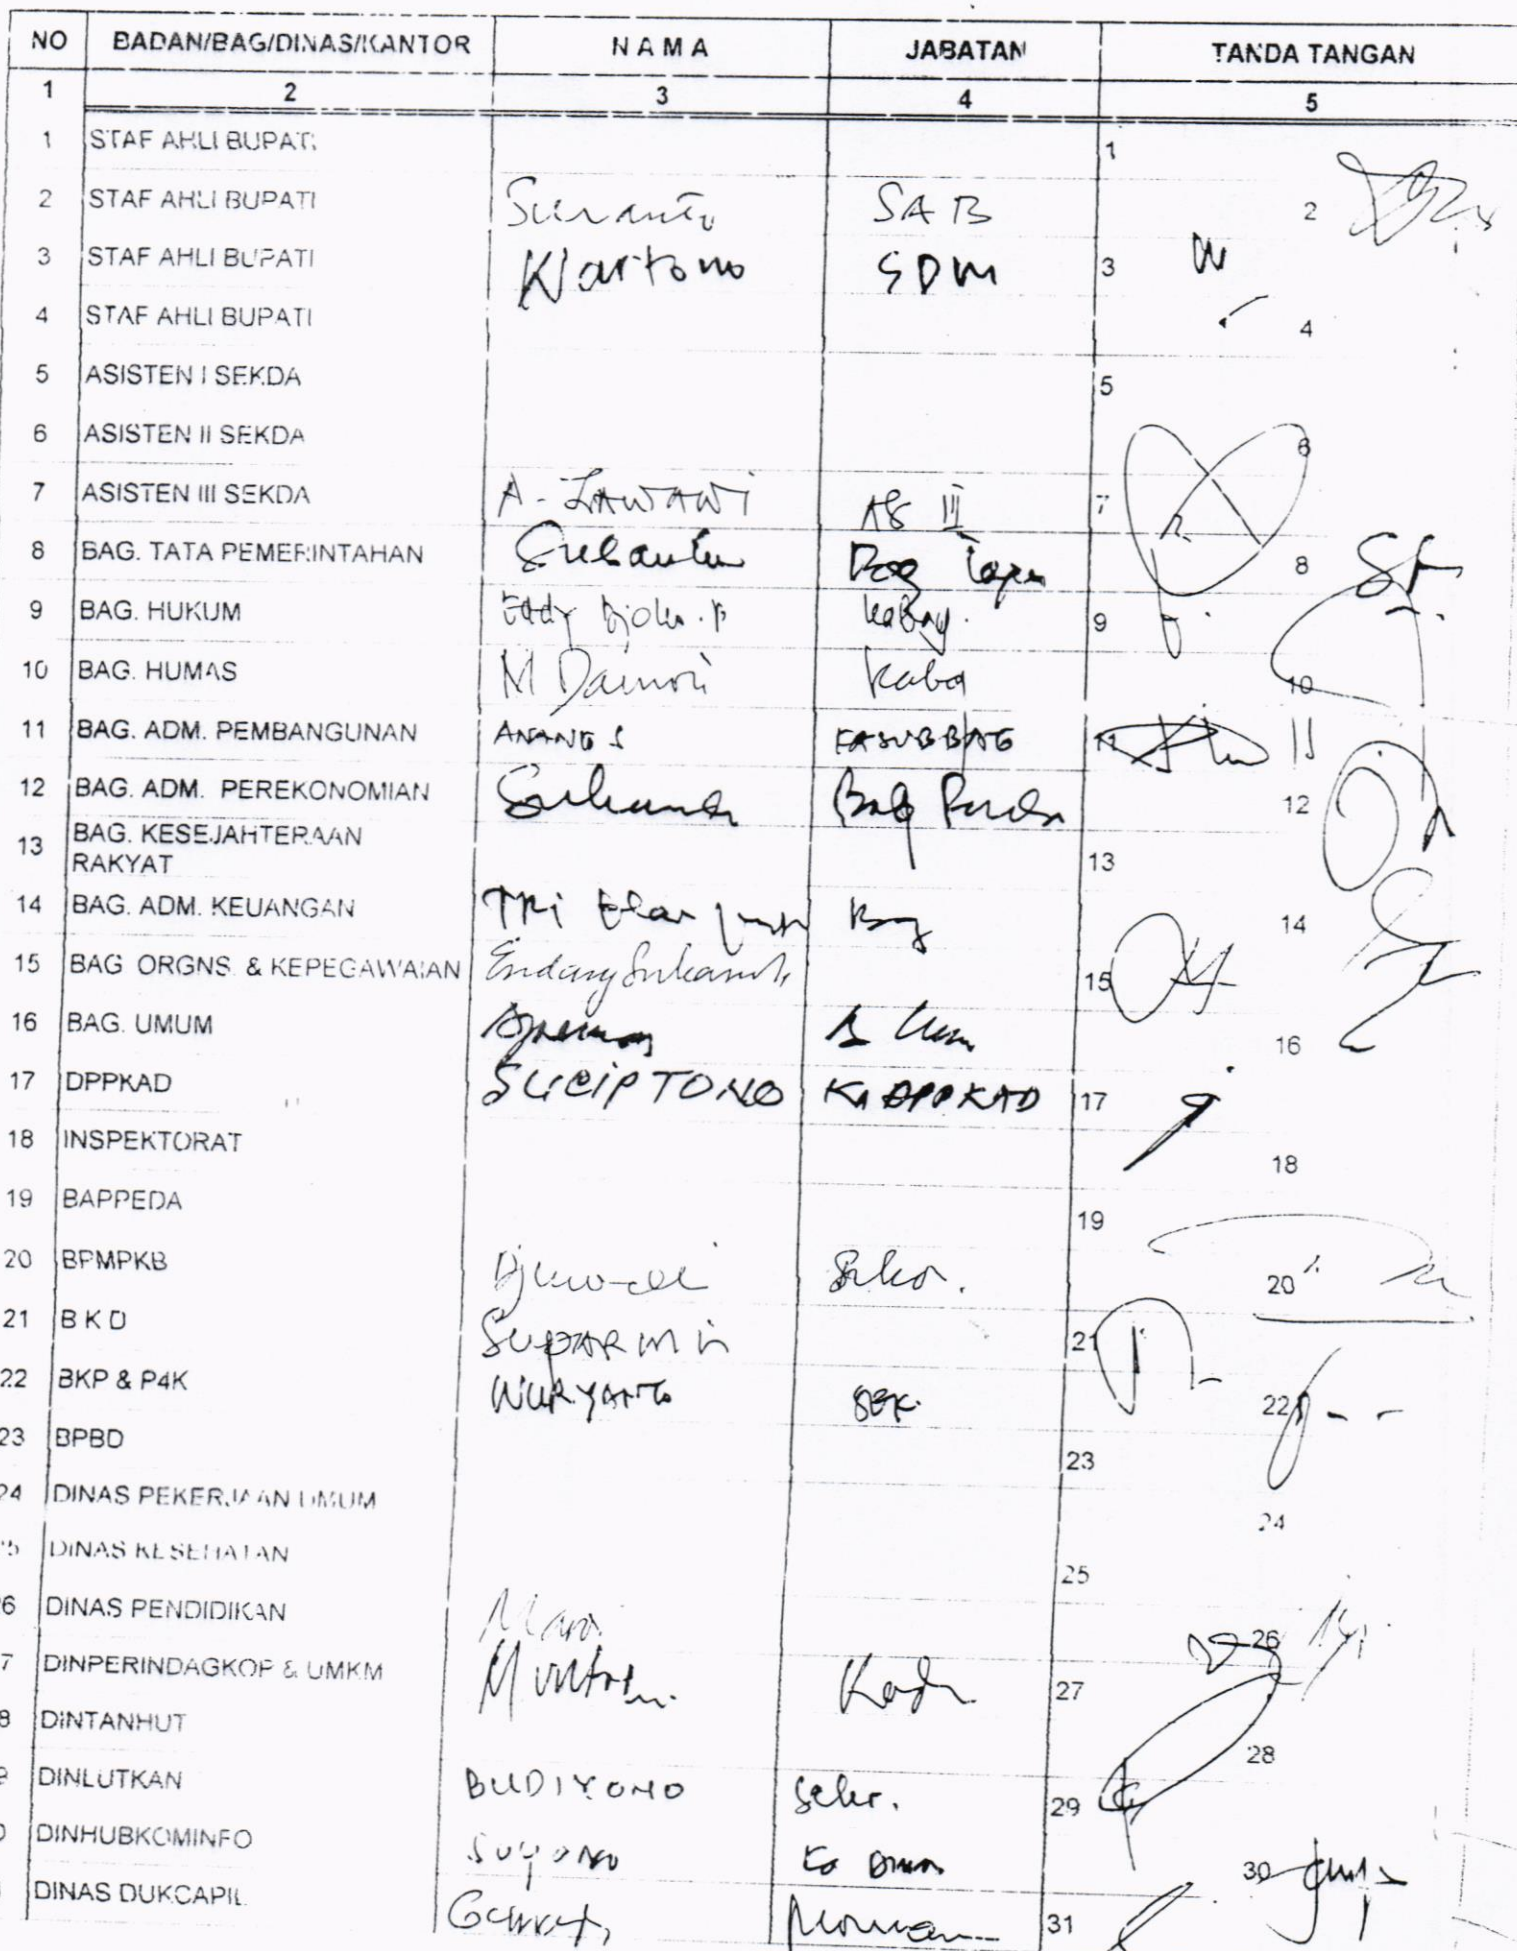 NO BADAN/BAG/DINAS/KANTOR N A M A JABATAN TANDA TANGAN
1 2 3 4 5
1 STAF AHLI BUPATI 1
2 STAF AHLI BUPATI Suranto SAB 2
3 STAF AHLI BUPATI Wartono SDM 3
4 STAF AHLI BUPATI 4
5 ASISTEN I SEKDA 5
6 ASISTEN II SEKDA 6
7 ASISTEN III SEKDA A. ZAWAWI AS III 7
8 BAG. TATA PEMERINTAHAN Bag Tapem 8
9 BAG. HUKUM Eddy Djoko. P Kabag. 9
10 BAG. HUMAS M Daimori Kaba 10
11 BAG. ADM. PEMBANGUNAN ANANG S KASUBBAG 11
12 BAG. ADM. PEREKONOMIAN Bag 12
13 BAG. KESEJAHTERAAN
RAKYAT 13
14 BAG. ADM. KEUANGAN TRi 14
15 BAG ORGNS. & KEPEGAWAIAN Endang 15
16 BAG. UMUM 16
17 DPPKAD SUCIPTONO Ka DPPKAD 17
18 INSPEKTORAT 18
19 BAPPEDA 19
20 BPMPKB Djuwadi 20
21 B K D SUPARMIN 21
22 BKP & P4K WURYANTO SEK. 22
23 BPBD 23
24 DINAS PEKERJAAN UMUM 24
25 DINAS KESEHATAN 25
26 DINAS PENDIDIKAN 26
7 DINPERINDAGKOP & UMKM 27
8 DINTANHUT 28
9 DINLUTKAN BUDIYONO Sekr. 29
0 DINHUBKOMINFO Suyono Ka Dinas 30
DINAS DUKCAPIL 31